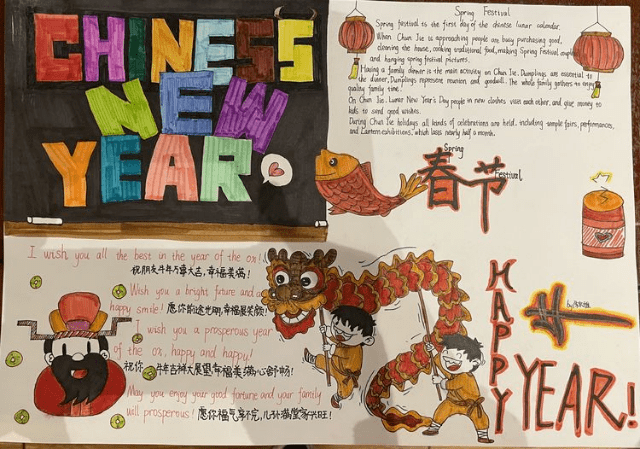 CHINESS
NEW
YEAR
Spring Festival
Spring festival is the first day of the chinese lunar calendar.
When Chun Jie is approaching people are busy purchasing good,
cleaning the house, cooking traditional food, making Spring Festival couplets
and hanging spring festival pictures.
Having a family dinner is the main activity on Chun Jie. Dumplings are essential to
the dinner, Dumplings represent reunion and goodwill. The whole family gathers to enjoy
quality family time!
On Chun Jie, Lunar New Year's Day people in new clothes visit each other, and give money to
kids to send good wishes.
During Chun Jie holidays all kinds of celebrations are held, including temple fairs, performances,
and Lantern exhibitions, which lasts nearly half a month.
Spring
春节
Festival
I wish you all the best in the year of the ox!
祝朋友牛年万事大吉,幸福美满!
Wish you a bright future and a
happy smile! 愿你前途光明,幸福展笑颜!
I wish you a prosperous year
of the ox, happy and happy!
祝你 牛年吉祥大展望幸福美满心舒畅!
May you enjoy your good fortune and your family
will prosperous! 愿你福气享不完,儿孙满堂家兴旺!
HAPPY
YEAR!